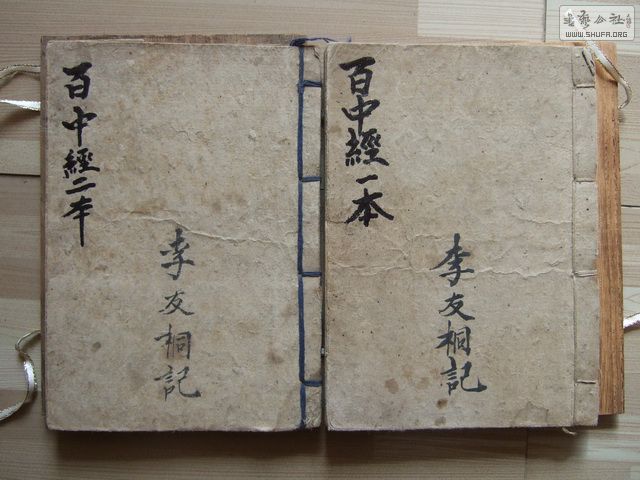 百中經一本
李友桐記
百中經二本
李友桐記
WWW.SHUFA.ORG